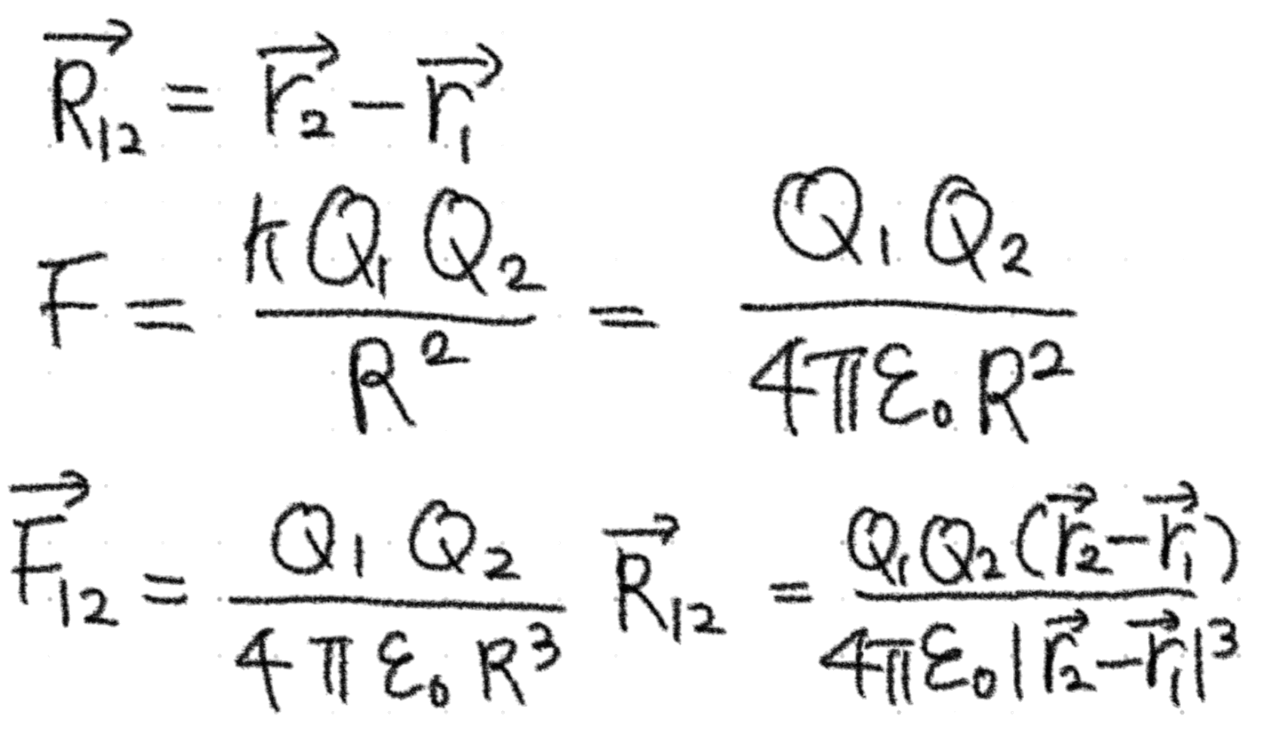 $\overrightarrow{R_{12}} = \overrightarrow{r_2} - \overrightarrow{r_1}$
$F = \frac{kQ_1Q_2}{R^2} = \frac{Q_1Q_2}{4\pi\varepsilon_0 R^2}$
$\overrightarrow{F_{12}} = \frac{Q_1Q_2}{4\pi\varepsilon_0 R^3} \overrightarrow{R_{12}} = \frac{Q_1Q_2(\overrightarrow{r_2} - \overrightarrow{r_1})}{4\pi\varepsilon_0 |\overrightarrow{r_2} - \overrightarrow{r_1}|^3}$